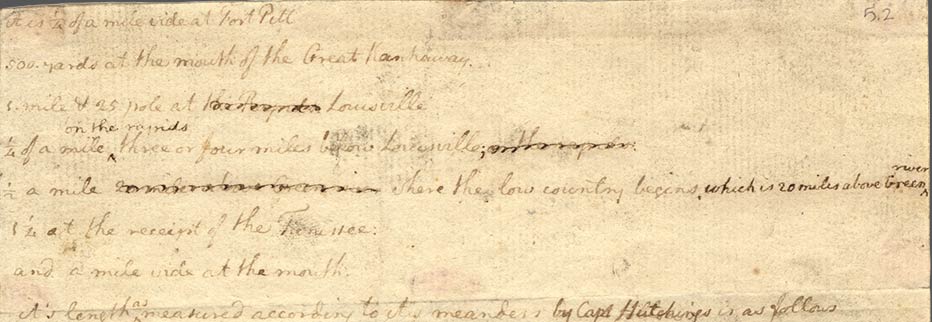 5.2
it is ¼ of a mile wide at Fort Pitt
500. yards at the mouth of the Great Kanhaway.
1. mile & 25 pole at the Rapids Louisville
on the rapids
¼ of a mile, three or four miles below Louisville;
river
½ a mile where the low country begins, which is 20 miles above Green
1 ¼ at the receipt of the Tanissee.
and a mile wide at the mouth.
as
it's length measured according to it's meanders by Capt Hutchings is as follows